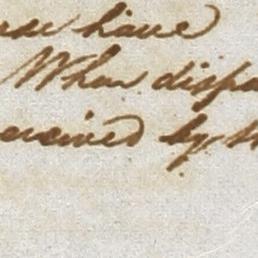 have
When dispa
ceived by th